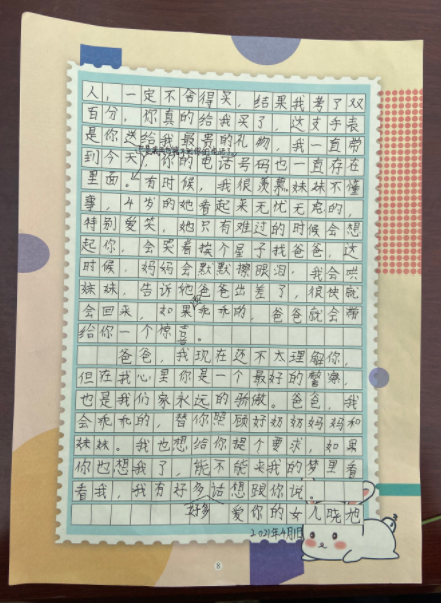 人，一定不舍得买，结果我考了双
百分，你真的给我买了，这支手表
是你送给我最贵的礼物，我一直带
到今天，你的电话号码也一直存在
里面。有时候，我很羡慕妹妹不懂
事，4岁的她看起来无忧无虑的，
特别爱笑，她只有难过的时候会想
起你，会哭着挨个屋子找爸爸，这
时候，妈妈会默默擦眼泪，我会哄
妹妹，告诉她爸爸出差了，很快就
会回来，如果你乖乖的，爸爸就会带
给你一个惊喜。
爸爸，我现在还不太理解你，
但在我心里你是一个最好的警察，
也是我们家永远的骄傲。爸爸，我
会乖乖的，替你照顾好奶奶妈妈和
妹妹。我也想给你提个要求，如果
你也想我了，能不能来我的梦里看
看我，我有好多好多话想跟你说。
爱你的女儿晓旭
2021年4月1日
8